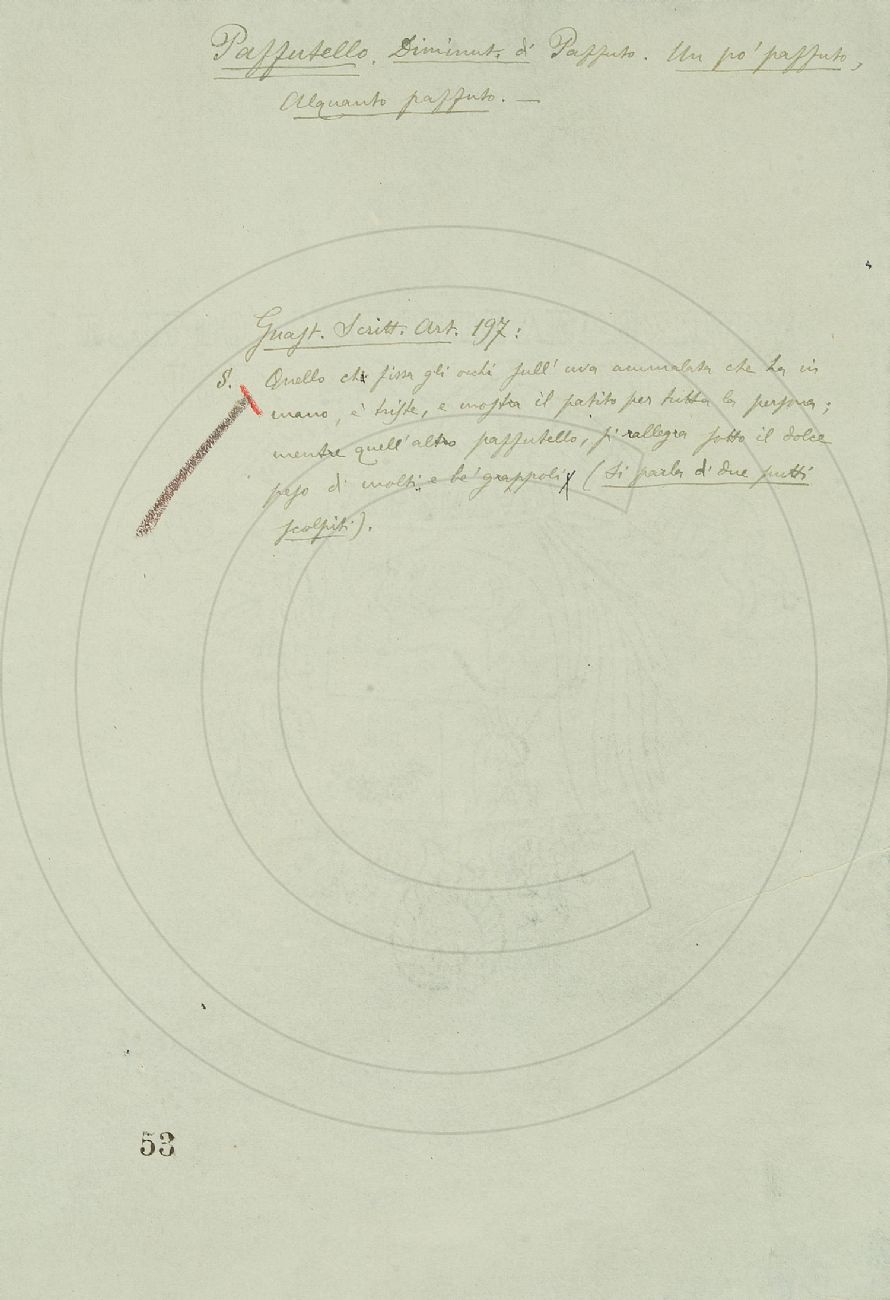 Paffutello. Diminut. di Paffuto. Un po' paffuto,
Alquanto paffuto. —
Guast. Scritt. Art. 197:
S. Quello che fissa gli occhi sull' uva ammalata che ha in
mano, è triste, e mostra il patito per tutta la persona;
mentre quell' altro paffutello, si rallegra sotto il dolce
peso di molti e be' grappoli (Si parla di due putti
scolpiti).
53